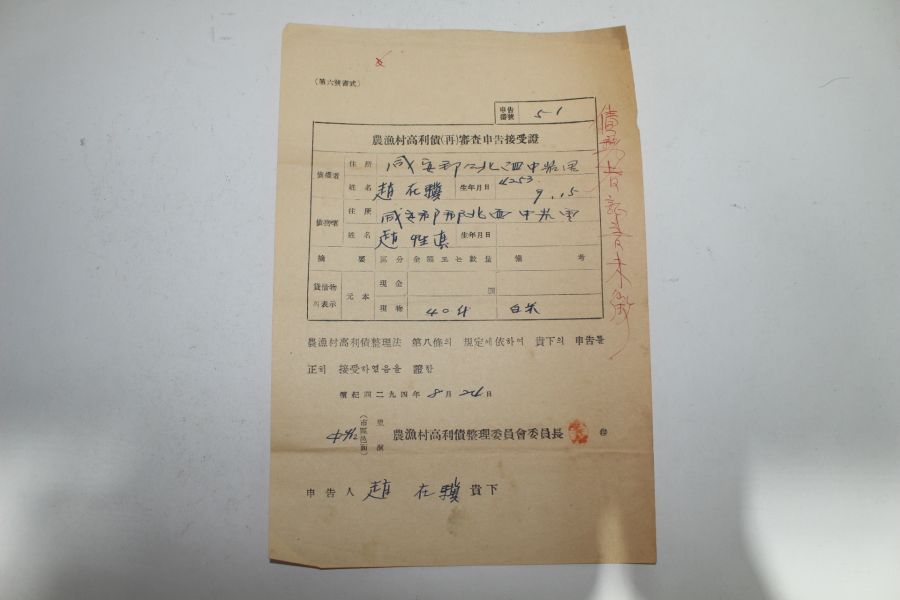 (第六號書式)
申告番號 5-1
農漁村高利債(再)審査申告接受證
債權者 住所 咸安郡 北面 中岩里
姓名 趙在驥 生年月日 4253. 9.15
債務者 住所 咸安郡 北面 中岩里
姓名 趙性真 生年月日
摘要 區分 金額 또는 數量 備考
貸借物의表示 元本 現金 圜
現物 40斗 白米
農漁村高利債整理法 第八條의 規定에依하여 貴下의 申告를
正히 接受하였음을 證함
檀紀四二九四年 8月 24日
(市區邑面) 里洞 農漁村高利債整理委員會委員長
申告人 趙在驥 貴下